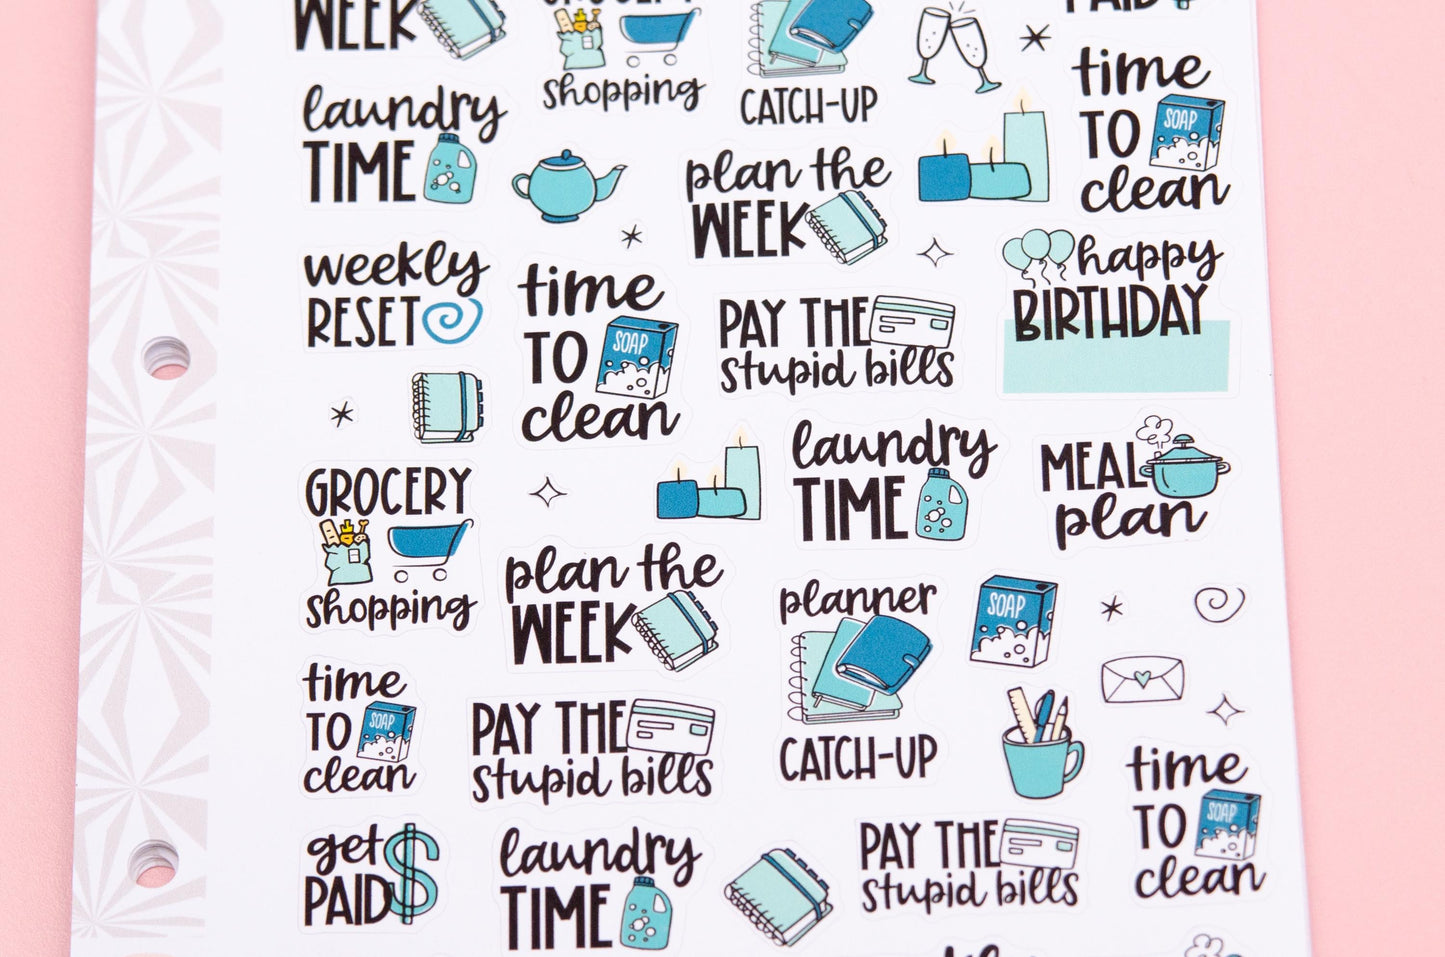 WEEK
GROCERY
shopping
CATCH-UP
PAID
laundry
TIME
time
TO
SOAP
clean
plan the
WEEK
weekly
RESET
time
TO
SOAP
clean
PAY THE
stupid bills
happy
BIRTHDAY
GROCERY
shopping
laundry
TIME
MEAL
plan
plan the
WEEK
planner
CATCH-UP
SOAP
time
TO
SOAP
clean
PAY THE
stupid bills
time
TO
SOAP
clean
get
PAID
$
laundry
TIME
PAY THE
stupid bills